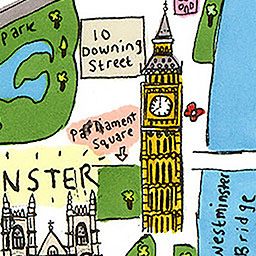 Park
10
Downing
Street
Parliament
Square
NSTER
Westminster
Bridge